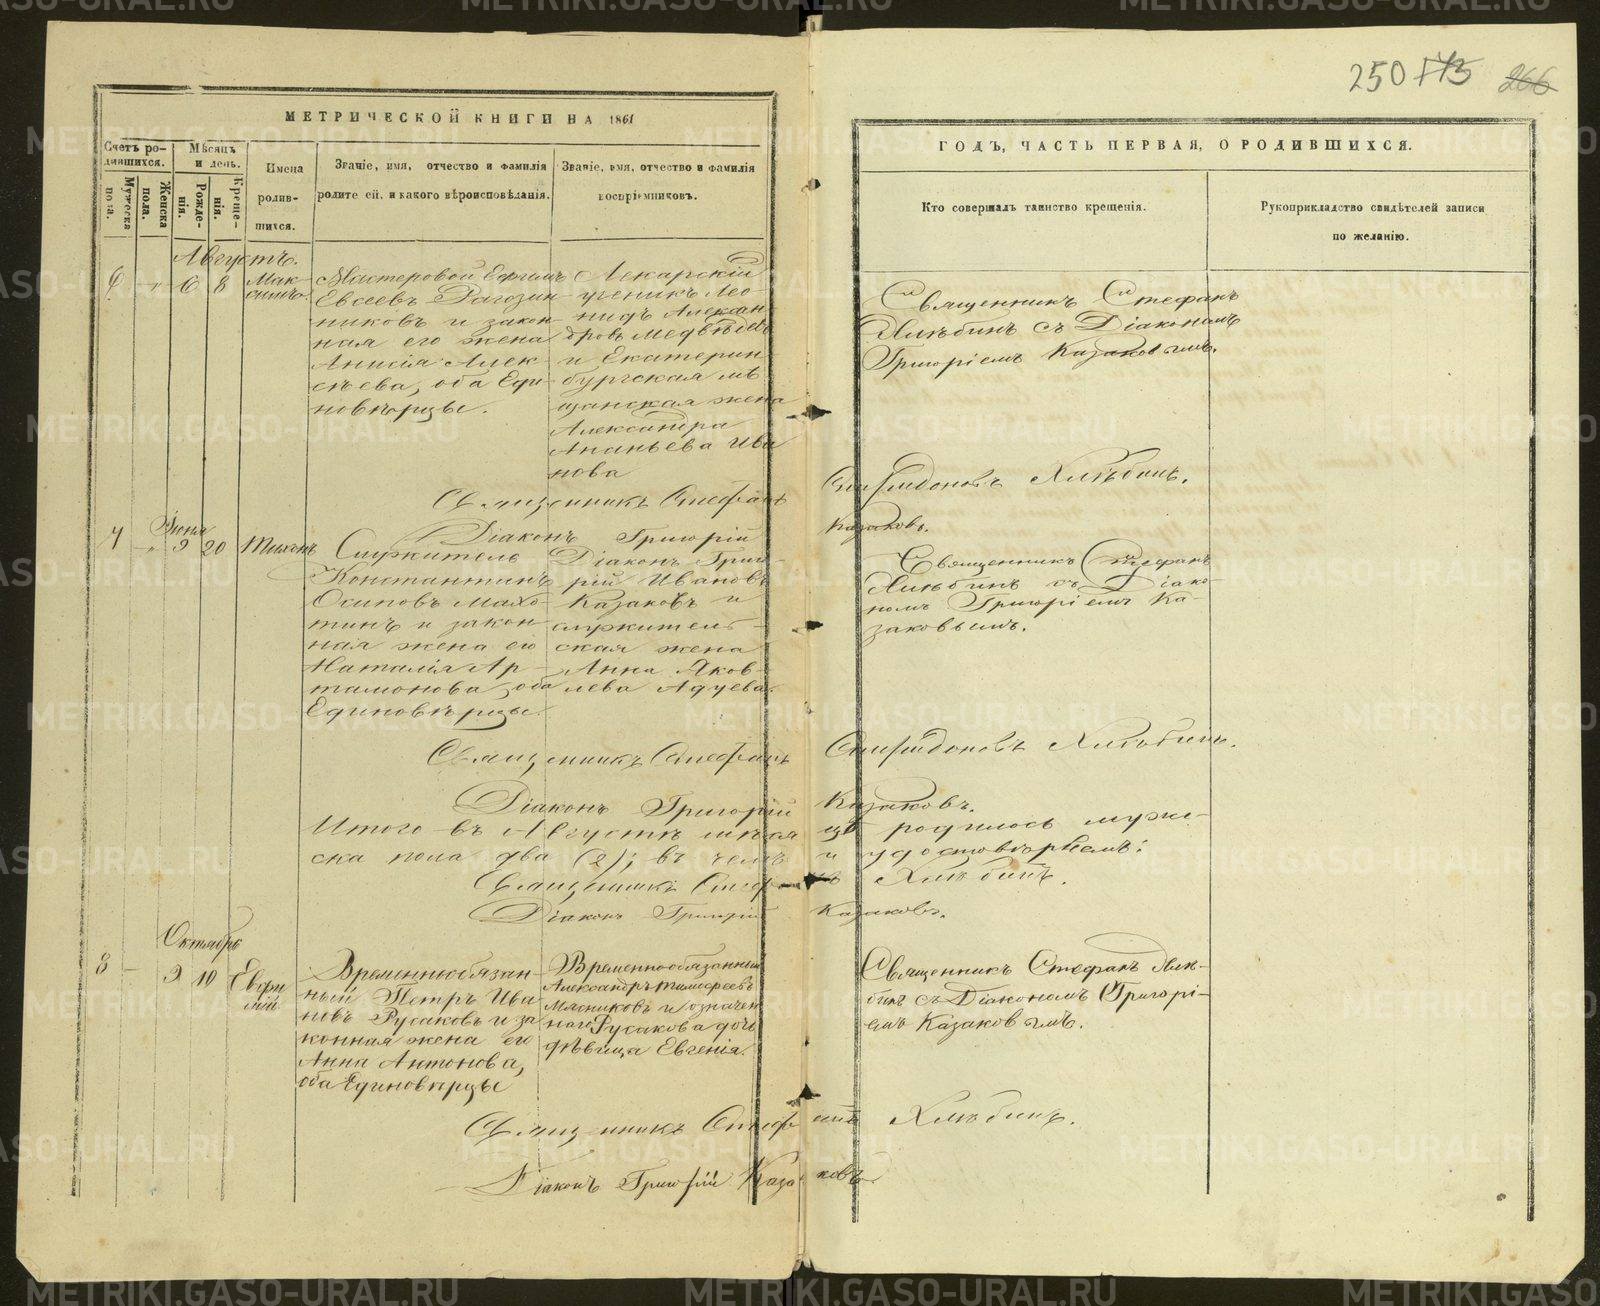 250 173 266
МЕТРИЧЕСКОЙ КНИГИ НА 1861
ГОДЪ, ЧАСТЬ ПЕРВАЯ, О РОДИВШИХСЯ.
Счетъ ро-
дившихся.
Мужеска
пола.
Женска
пола.
Мѣсяцъ
и день.
Рожде-
нія.
Креще-
нія.
Имена
родив-
шихся.
Званіе, имя, отчество и фамилія
родителей, и какого вѣроисповѣданія.
Званіе, имя, отчество и фамилія
воспріемниковъ.
Кто совершалъ таинство крещенія.
Рукоприкладство свидѣтелей записи
по желанію.
Августъ.
6 " 6 8
Мак-
симъ
Мастеровой Ефимъ
Евсеевъ Рагозин-
никовъ и закон-
ная его жена
Анисія Алек-
сѣева, оба Еди-
новѣрцы.
Лекарскій
ученикъ Лео-
нидъ Алексан
дровъ Медвѣдевъ
и Екатерин-
бургская мѣ-
щанская жена
Александра
Ананьева Ива
нова
Священникъ Стефанъ
Хлѣбинъ съ Діакономъ
Григоріемъ Казаковымъ.
Священникъ Стефанъ Спиридоновъ Хлѣбинъ.
Діаконъ Григорій Казаковъ.
Іюня
7 - " 9 20 Тихонъ
Служитель
Константинъ
Осиповъ Махо-
тинъ и закон-
ная жена его
Наталія Ар-
тамонова, оба
Единовѣрцы.
Діаконъ Григо-
рій Ивановъ
Казаковъ и
служитель-
ская жена
Анна Яков-
лева Адуева.
Священникъ Стефанъ
Хлѣбинъ съ Діако-
номъ Григоріемъ Ка-
заковымъ.
Священникъ Стефанъ Спиридоновъ Хлѣбинъ.
Діаконъ Григорій Казаковъ.
Итого въ Августѣ мѣсяцѣ родилось муже-
ска пола два (2); въ чемъ и удостовѣряемъ:
Священникъ Стефанъ Хлѣбинъ.
Діаконъ Григорій Казаковъ.
Октябрь
8 - 9 10
Евфи
мій
Временнообязан-
ный Петръ Ива
новъ Русаковъ и за
конная жена его
Анна Антонова,
оба Единовѣрцы
Временнообязанный
Александръ Тимофеевъ
Мясниковъ и означен
наго Русакова дочь
дѣвица Евгенія.
Священникъ Стефанъ Хлѣ-
бинъ съ Діакономъ Григорі-
емъ Казаковымъ.
Священникъ Стефанъ Хлѣбинъ.
Діаконъ Григорій Казаковъ
METRIKI.GASO-URAL.RU